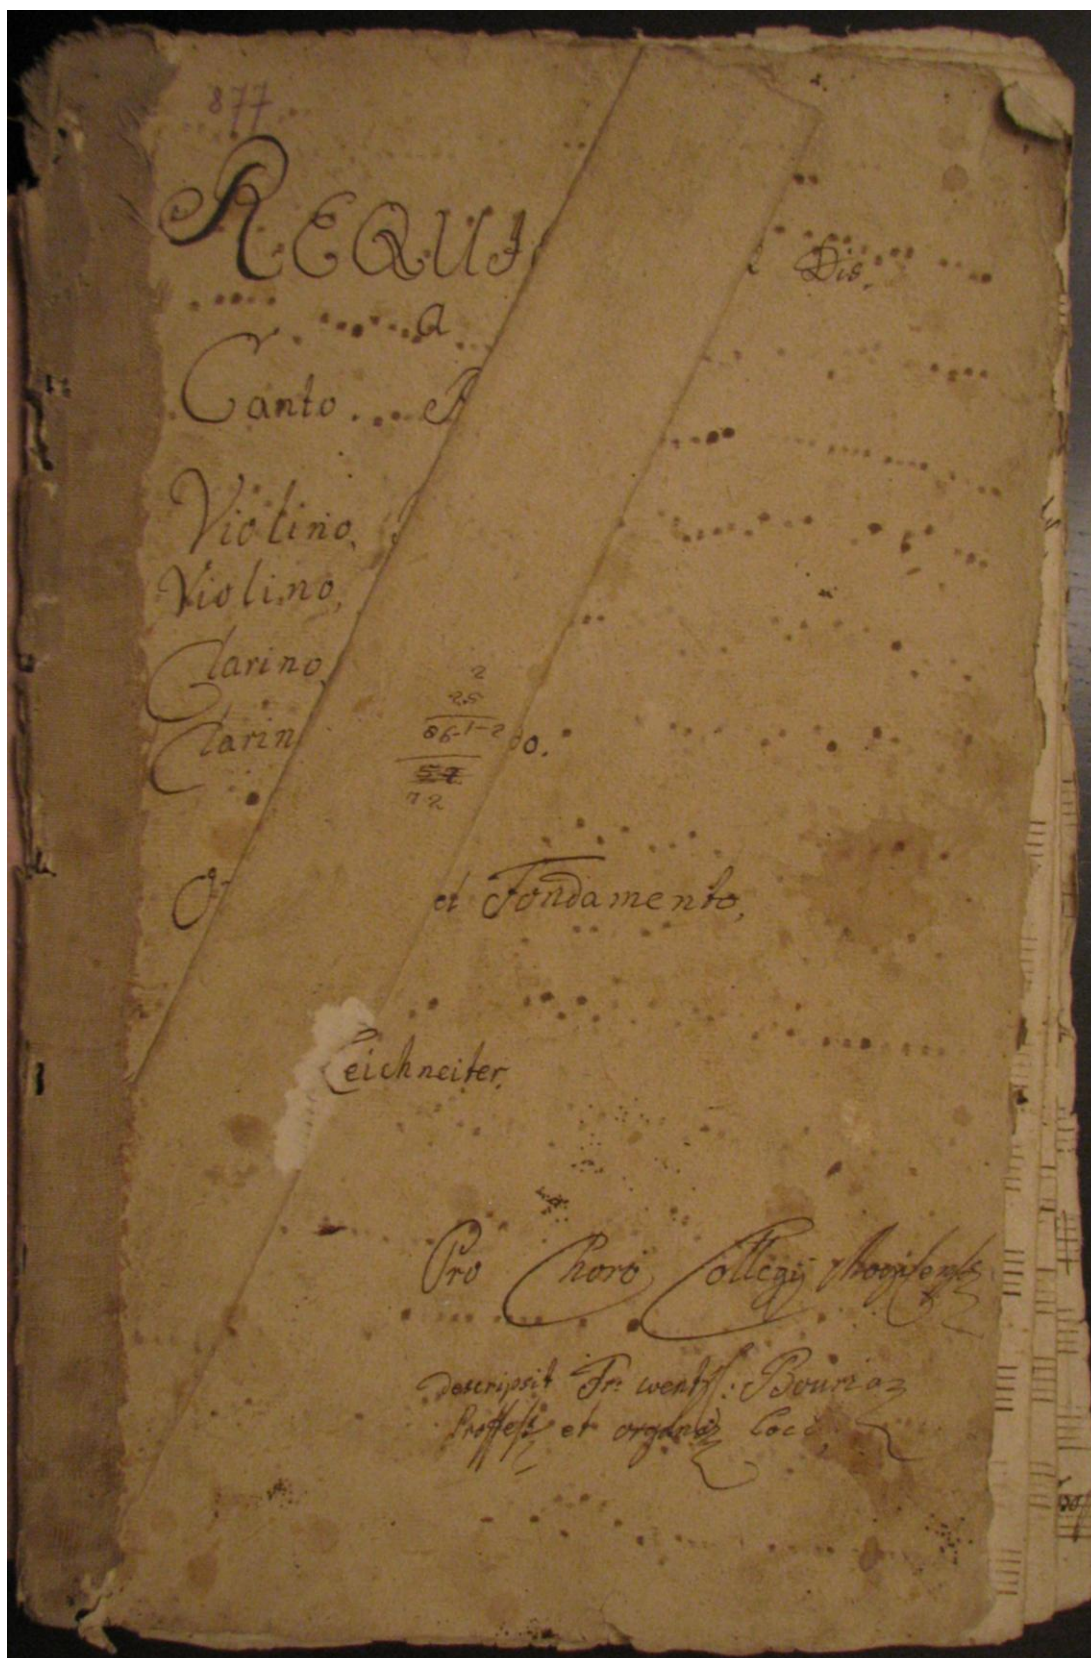 877
REQUI Dis.
a
Canto. A
Violino,
Violino,
Clarino,
Clarin do.
2
25
86-1-2
72
O et Fondamento,
Leichneiter,
Pro Choro Collegij
descripsit Fr: wentzl: Bouria
et organ loci